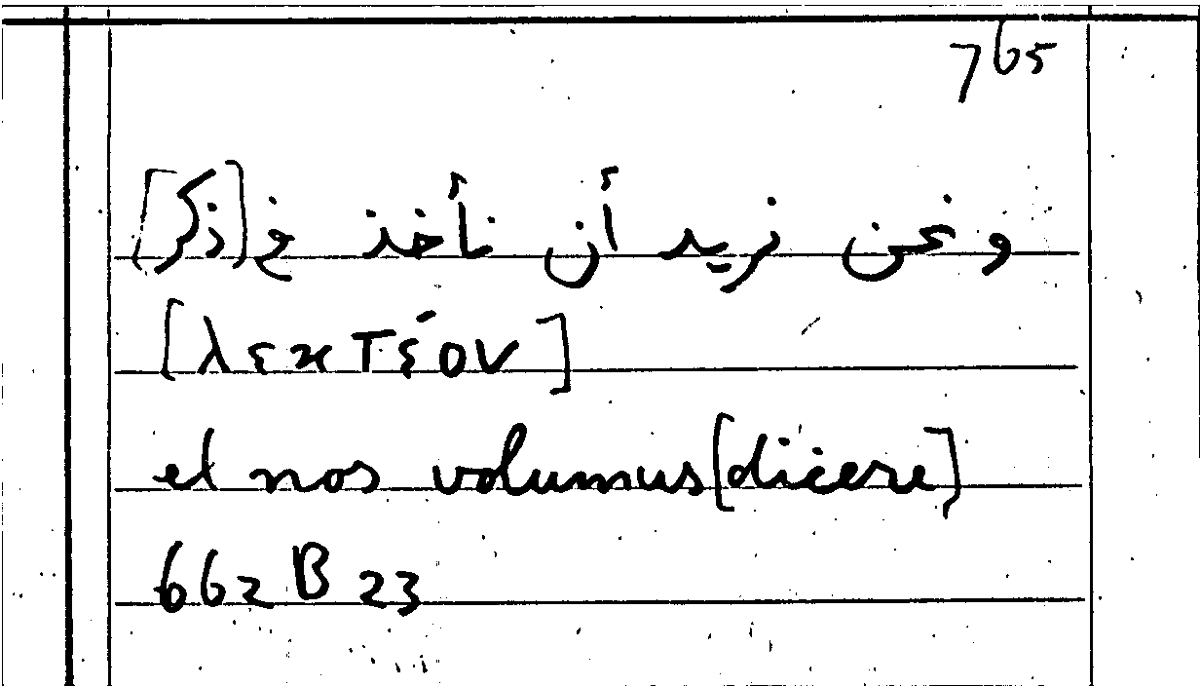 765
و نحن نريد أن نأخذ في [ذكر]
[λεκτέον]
et nos volumus [dicere]
662 B 23